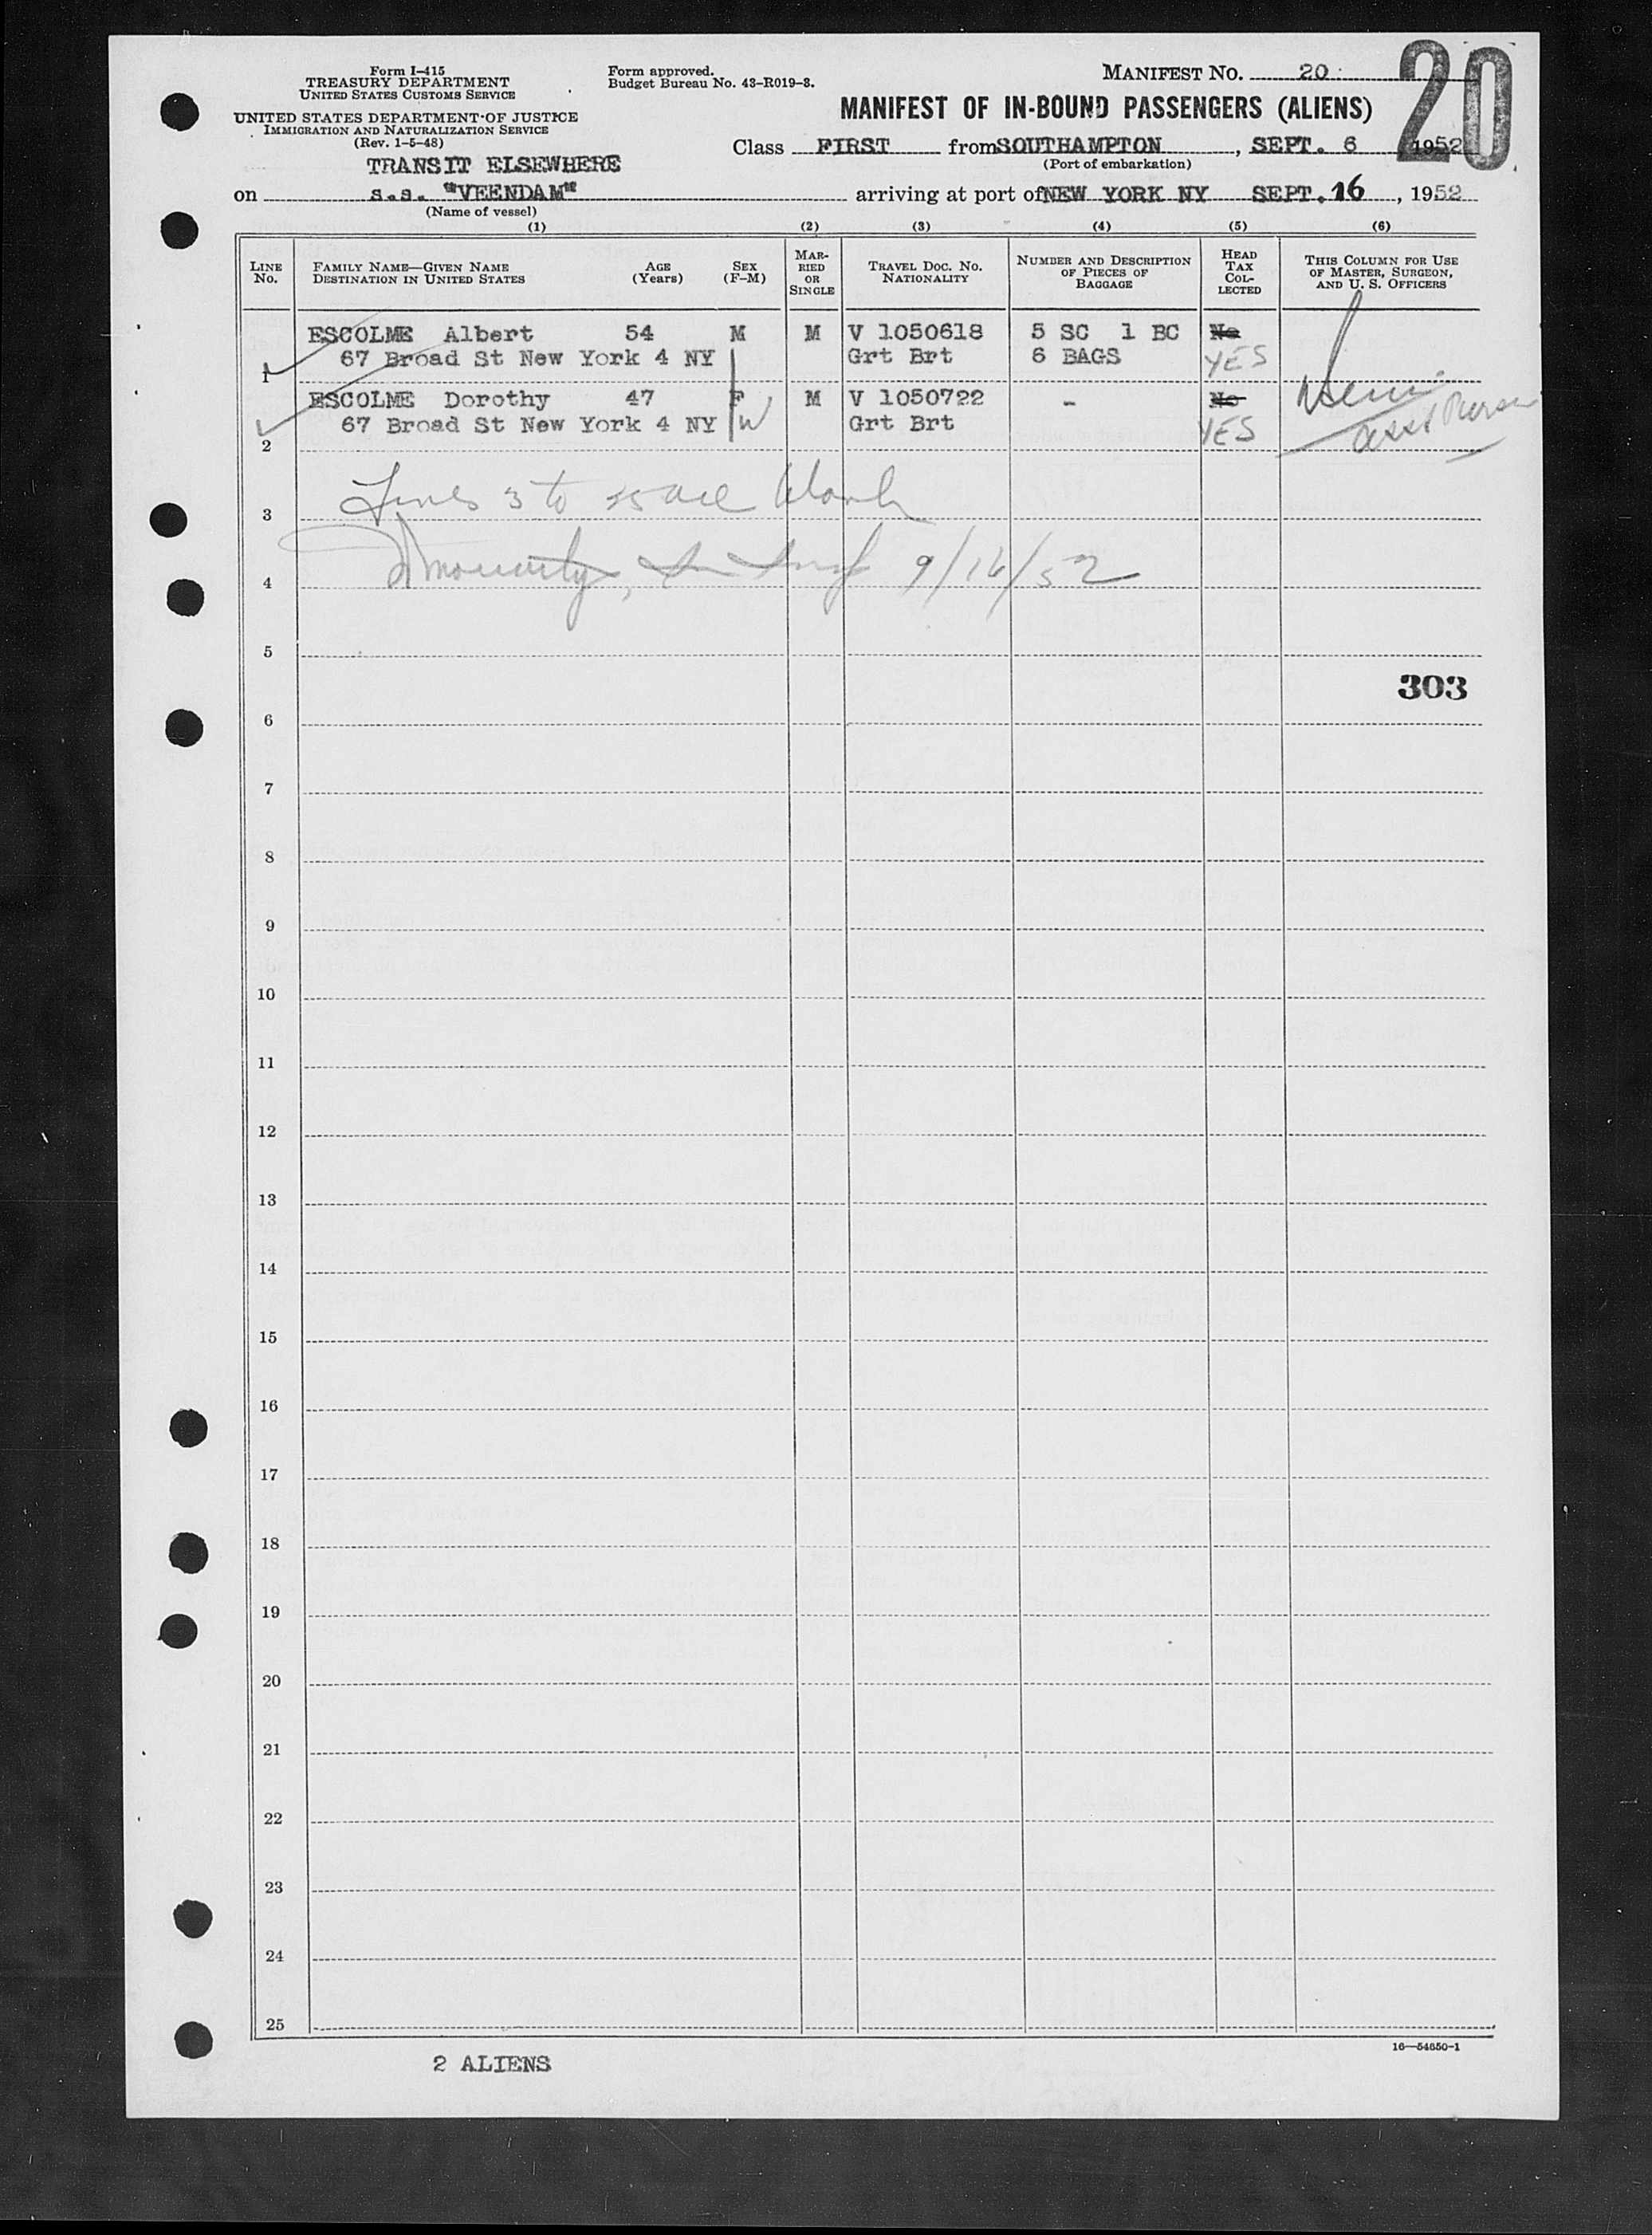 Form I-415
TREASURY DEPARTMENT
UNITED STATES CUSTOMS SERVICE
UNITED STATES DEPARTMENT OF JUSTICE
IMMIGRATION AND NATURALIZATION SERVICE
(Rev. 1-5-48)
Form approved.
Budget Bureau No. 43-R019-3.
MANIFEST NO. 20
20
MANIFEST OF IN-BOUND PASSENGERS (ALIENS)
Class FIRST from SOUTHAMPTON, SEPT. 6, 1952
(Port of embarkation)
TRANSIT ELSEWHERE
on s.s. "VEENDAM" arriving at port of NEW YORK NY SEPT. 16, 1952
(Name of vessel)
(1) (2) (3) (4) (5) (6)
LINE NO. FAMILY NAME—GIVEN NAME DESTINATION IN UNITED STATES AGE (Years) SEX (F-M) MARRIED OR SINGLE TRAVEL DOC. NO. NATIONALITY NUMBER AND DESCRIPTION OF PIECES OF BAGGAGE HEAD TAX COLLECTED THIS COLUMN FOR USE OF MASTER, SURGEON, AND U. S. OFFICERS
ESCOLME Albert 54 M M V 1050618 5 SC 1 BC No
1 67 Broad St New York 4 NY Grt Brt 6 BAGS YES
ESCOLME Dorothy 47 F M V 1050722 - No
2 67 Broad St New York 4 NY W Grt Brt YES
asst Purser
3 Lines 3 to 25 are blank
4 9/16/52
5
303
6
7
8
9
10
11
12
13
14
15
16
17
18
19
20
21
22
23
24
25
16—54650-1
2 ALIENS